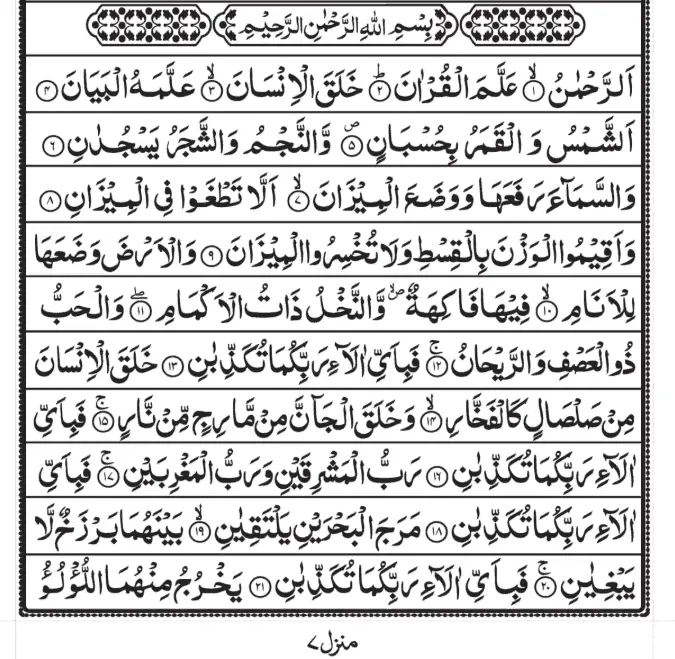 بِسْمِ اللهِ الرَّحْمٰنِ الرَّحِيْمِ
اَلرَّحْمٰنُ ۙ﴿۱﴾ عَلَّمَ الْقُرْاٰنَ ؕ﴿۲﴾ خَلَقَ الْاِنْسَانَ ۙ﴿۳﴾ عَلَّمَهُ الْبَيَانَ ﴿۴﴾
اَلشَّمْسُ وَ الْقَمَرُ بِحُسْبَانٍ ۪﴿۵﴾ وَّالنَّجْمُ وَالشَّجَرُ يَسْجُدٰنِ ﴿۶﴾
وَالسَّمَآءَ رَفَعَهَا وَوَضَعَ الْمِيْزَانَ ۙ﴿۷﴾ اَلَّا تَطْغَوْا فِى الْمِيْزَانِ ﴿۸﴾
وَاَقِيْمُوا الْوَزْنَ بِالْقِسْطِ وَلَا تُخْسِرُوا الْمِيْزَانَ ﴿۹﴾ وَالْاَرْضَ وَضَعَهَا
لِلْاَنَامِ ۙ﴿۱۰﴾ فِيْهَا فَاكِهَةٌ ۪ۙ وَّالنَّخْلُ ذَاتُ الْاَكْمَامِ ۖ﴿۱۱﴾ وَالْحَبُّ
ذُو الْعَصْفِ وَالرَّيْحَانُ ۚ﴿۱۲﴾ فَبِاَىِّ اٰلَآءِ رَبِّكُمَا تُكَذِّبٰنِ ﴿۱۳﴾ خَلَقَ الْاِنْسَانَ
مِنْ صَلْصَالٍ كَالْفَخَّارِ ۙ﴿۱۴﴾ وَخَلَقَ الْجَآنَّ مِنْ مَّارِجٍ مِّنْ نَّارٍ ۚ﴿۱۵﴾ فَبِاَىِّ
اٰلَآءِ رَبِّكُمَا تُكَذِّبٰنِ ﴿۱۶﴾ رَبُّ الْمَشْرِقَيْنِ وَرَبُّ الْمَغْرِبَيْنِ ۚ﴿۱۷﴾ فَبِاَىِّ
اٰلَآءِ رَبِّكُمَا تُكَذِّبٰنِ ﴿۱۸﴾ مَرَجَ الْبَحْرَيْنِ يَلْتَقِيٰنِ ۙ﴿۱۹﴾ بَيْنَهُمَا بَرْزَخٌ لَّا
يَبْغِيٰنِ ۚ﴿۲۰﴾ فَبِاَىِّ اٰلَآءِ رَبِّكُمَا تُكَذِّبٰنِ ﴿۲۱﴾ يَخْرُجُ مِنْهُمَا اللُّؤْلُؤُ
منزل ۷